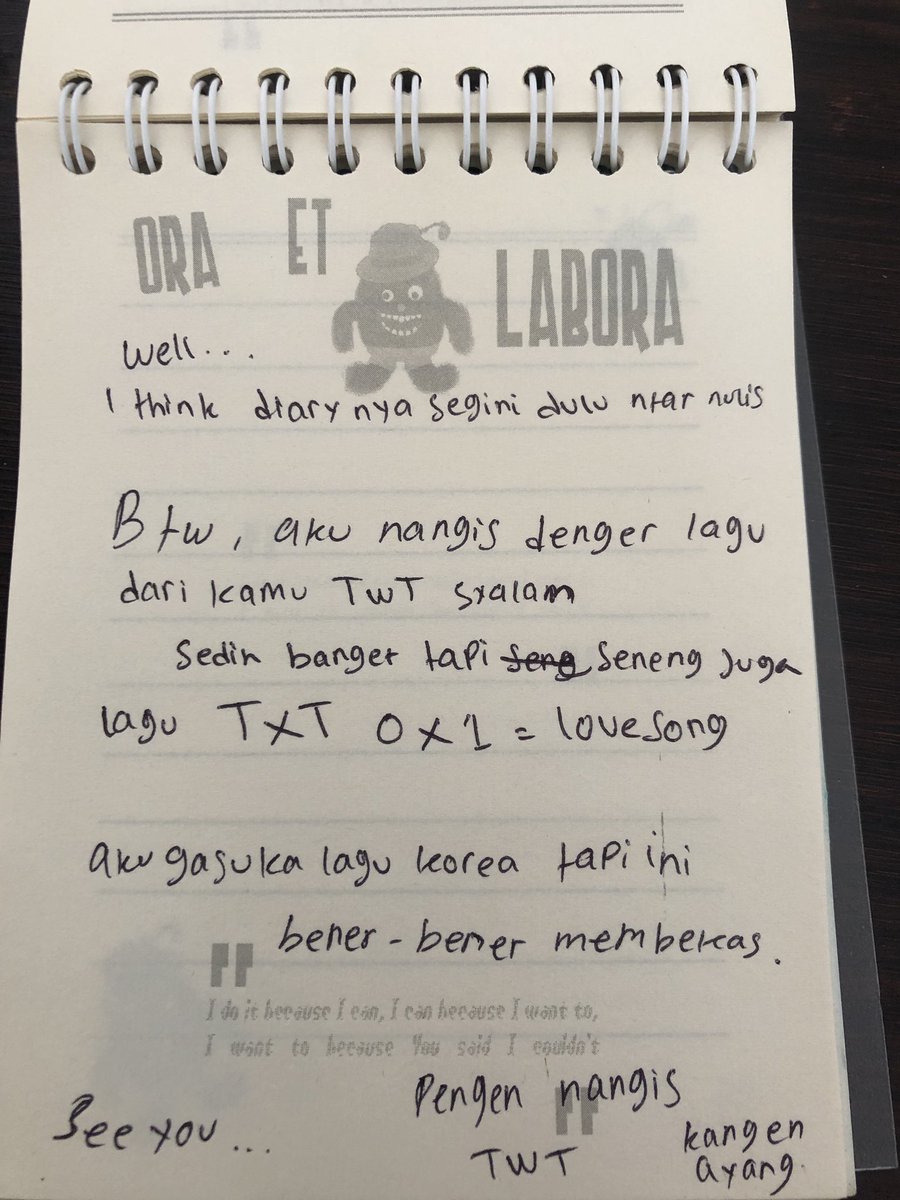 ORA ET LABORA
Well...
I think diary nya segini dulu ntar nulis
Btw, aku nangis denger lagu
dari kamu TwT sxalam
Sedih banget tapi seng seneng juga
lagu TXT 0X1 = lovesong
aku gasuka lagu korea tapi ini
bener-bener membekas.
"
I do it because I can, I can because I want to,
I want to because You said I couldn't
"
Pengen nangis
See you...
TWT
kangen
ayang.